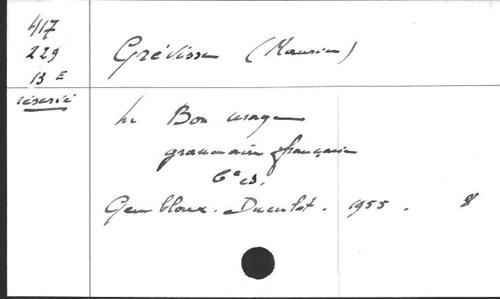 417
229
13 E
réservé
Grévisse (Maurice)
Le Bon usage
grammaire française
6e éd.
Gembloux. Duculot. 1955. 8